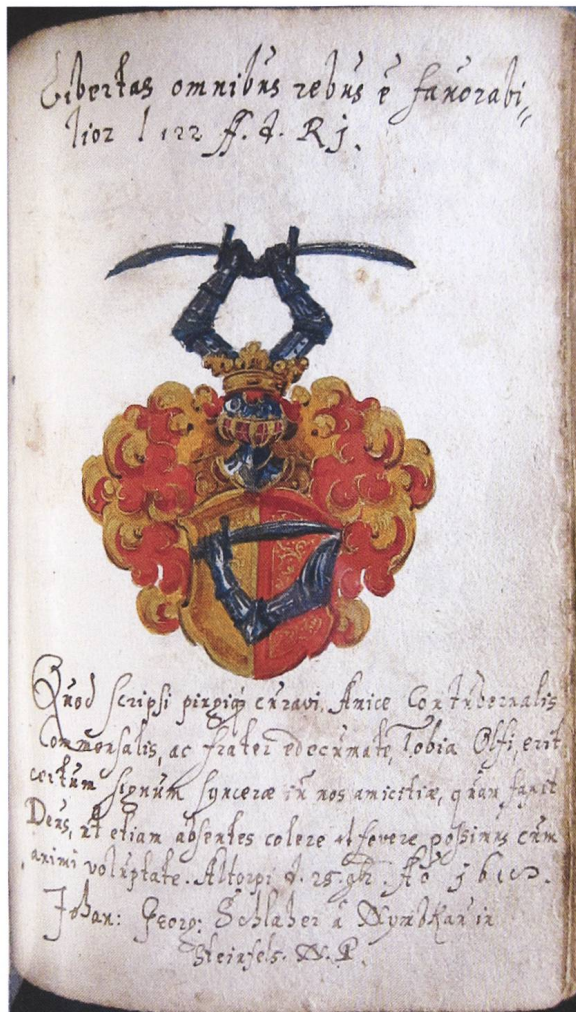 Libertas omnibus rebus ē fauorabi„
lior l 122 ff. d. R j.
Quod scripsi pingiq̃ curavi, Amice Contubernalis
Commensalis, ac frater edecumate, Tobia Olfi, erit
certum signum synceræ in nos amicitiæ, quam faxit
Deus, ut etiam absentes colere et fovere possimus cum
animi voluptate. Altorpi d. 25
Johan: Georg: Schlaher à
Steinfels. W. P.